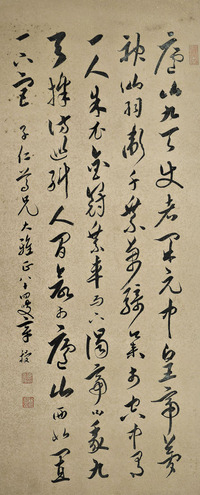 廬山九天使者開元中皇帝夢
神仙羽衛千乘萬騎集於空中有
一人朱衣金冠乘車而下謁帝曰我九
天採訪巡糾人間欲於廬山西北置
一下宮 子仁尊兄大雅正 八十四叟